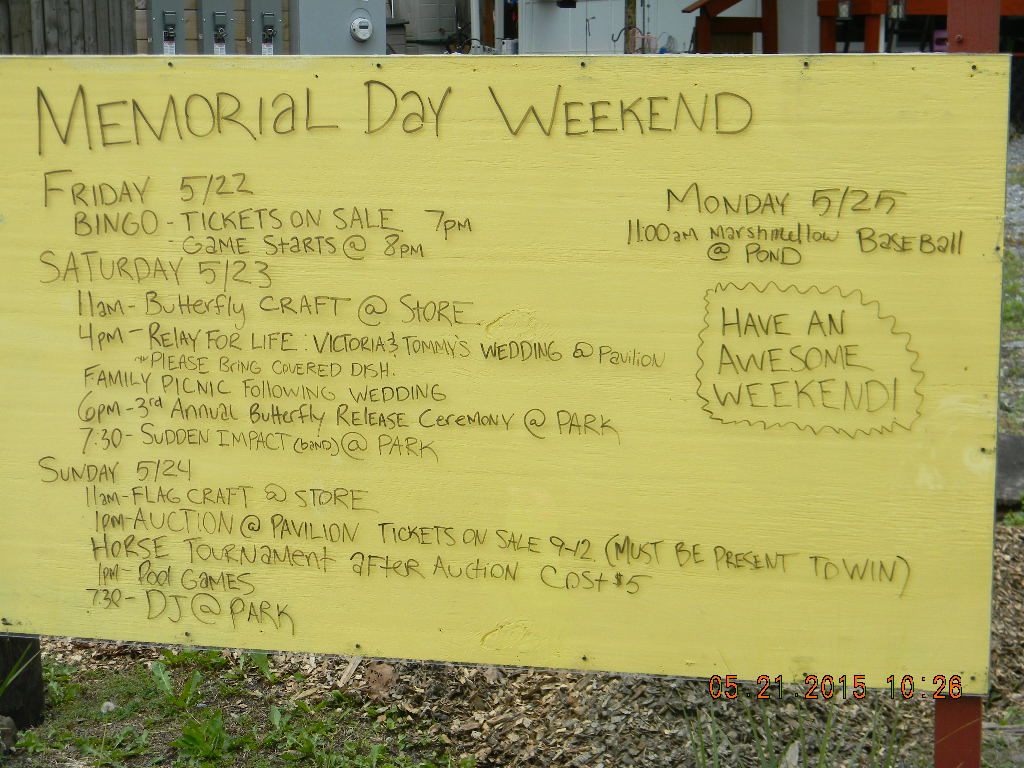 MEMORIAL DAY WEEKEND
FRIDAY 5/22
BINGO - TICKETS ON SALE 7pm
- GAME STARTS @ 8pm
SATURDAY 5/23
11am - Butterfly CRAFT @ STORE
4pm - RELAY FOR LIFE: VICTORIA & TOMMY'S WEDDING @ Pavilion
~ PLEASE BRING COVERED DISH.
FAMILY PICNIC FOLLOWING WEDDING
6pm - 3rd Annual Butterfly RELEASE CEREMONY @ PARK
7:30 - SUDDEN IMPACT (BAND) @ PARK
SUNDAY 5/24
11am - FLAG CRAFT @ STORE
1pm - AUCTION @ PAVILION TICKETS ON SALE 9-12 (MUST BE PRESENT TO WIN)
HORSE TOURNAMENT AFTER AUCTION COST $5
1pm - Pool GAMES
7:30 - DJ @ PARK
MONDAY 5/25
11:00am Marshmellow BASEBALL
@ POND
HAVE AN
AWESOME
WEEKEND!
05.21.2015 10:26